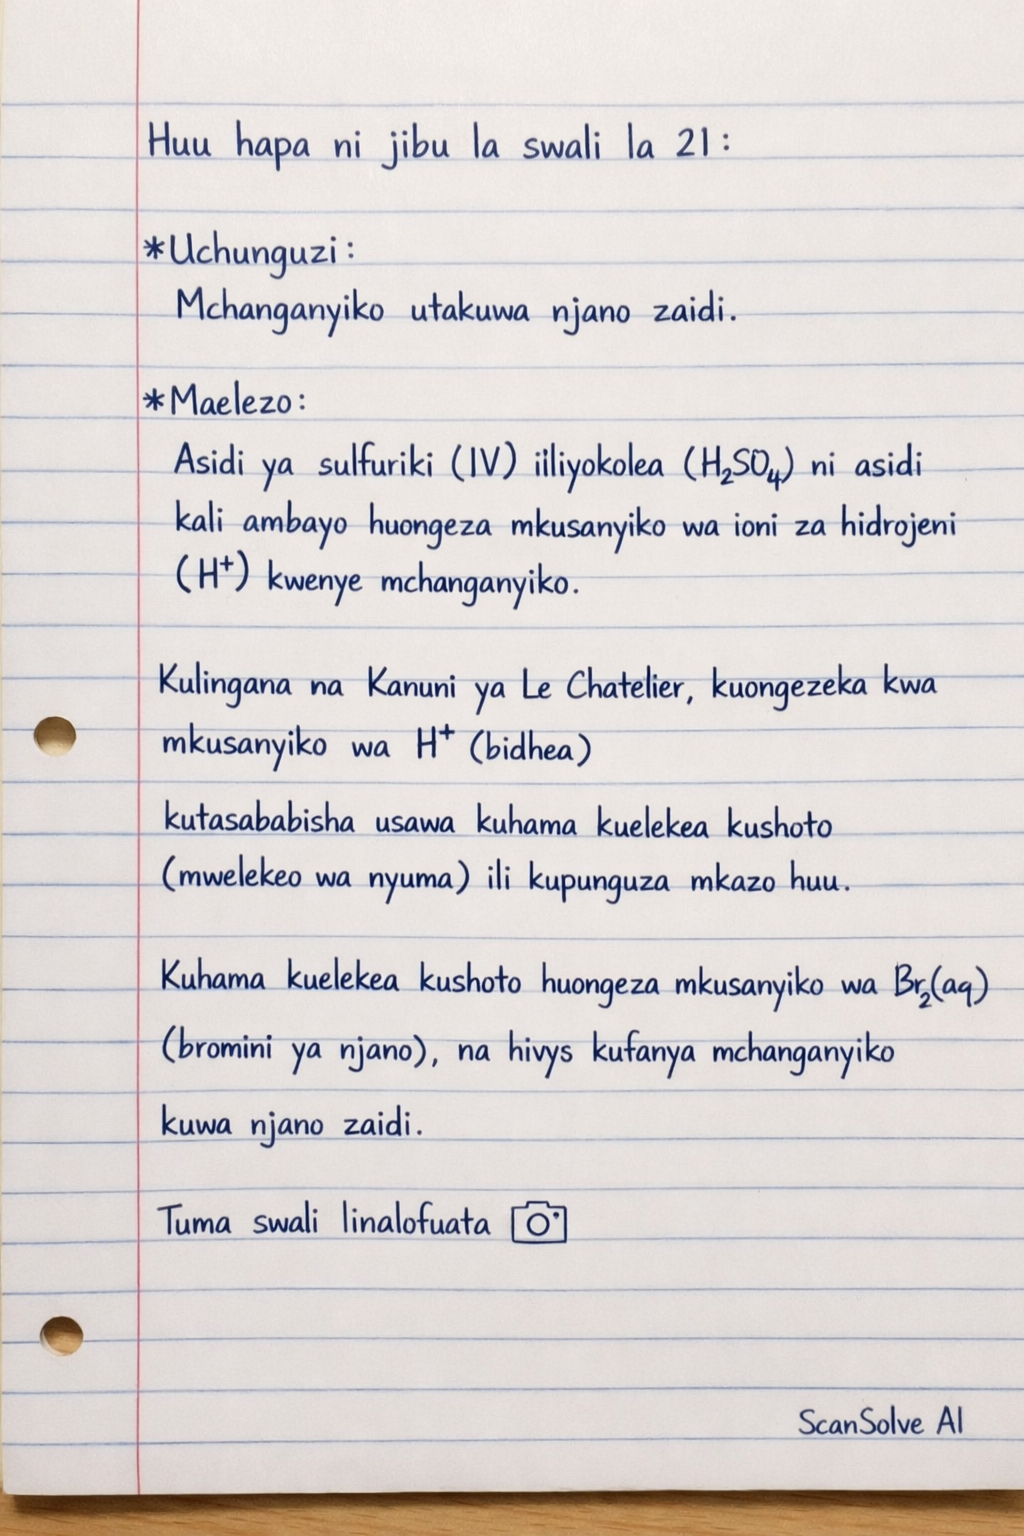 Huu hapa ni jibu la swali la 21:
*Uchunguzi:
Mchanganyiko utakuwa njano zaidi.
*Maelezo:
Asidi ya sulfuriki (IV) iiliyokolea (H₂SO₄) ni asidi
kali ambayo huongeza mkusanyiko wa ioni za hidrojeni
(H⁺) kwenye mchanganyiko.
Kulingana na Kanuni ya Le Chatelier, kuongezeka kwa
mkusanyiko wa H⁺ (bidhea)
kutasababisha usawa kuhama kuelekea kushoto
(mwelekeo wa nyuma) ili kupunguza mkazo huu.
Kuhama kuelekea kushoto huongeza mkusanyiko wa Br₂(aq)
(bromini ya njano), na hivys kufanya mchanganyiko
kuwa njano zaidi.
Tuma swali linalofuata
ScanSolve AI